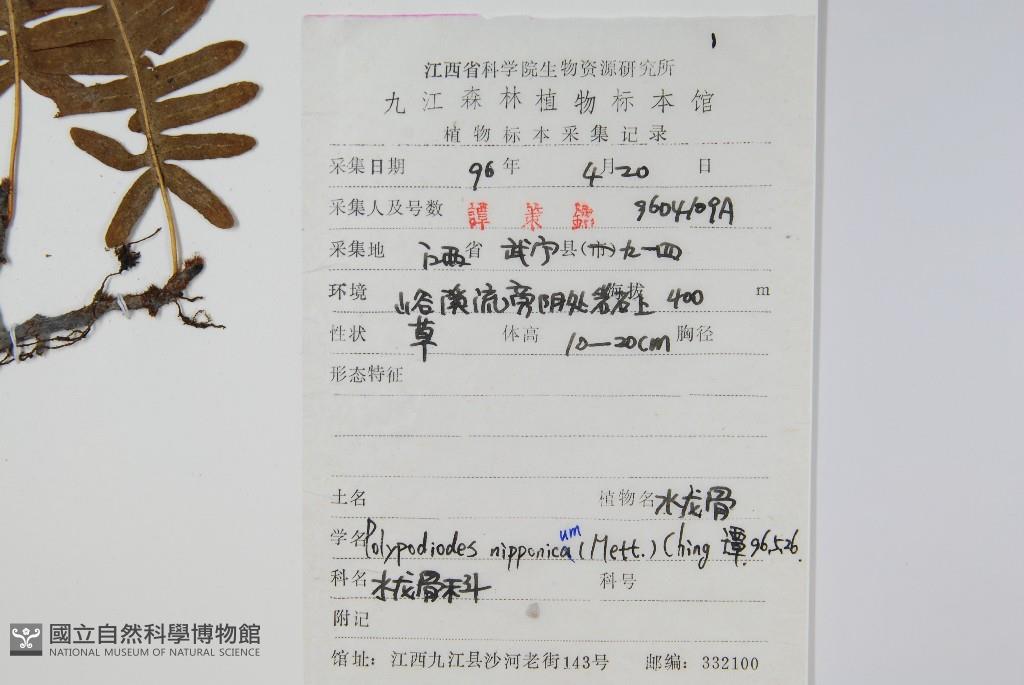 1
江西省科学院生物资源研究所
九江森林植物标本馆
植物标本采集记录
采集日期 96年 4月20日
采集人及号数 譚策銘 9604109A
采集地 江西省 武宁县(市)九一四
环境 山谷溪流旁阴处岩石上 海拔 400 m
性状 草 体高 10—20cm 胸径
形态特征
土名 植物名 水龙骨
学名 Polypodiodes nipponica um (Mett.) Ching 譚 96.5.26.
科名 水龙骨科 科号
附记
馆址：江西九江县沙河老街143号 邮编：332100
國立自然科學博物館
NATIONAL MUSEUM OF NATURAL SCIENCE